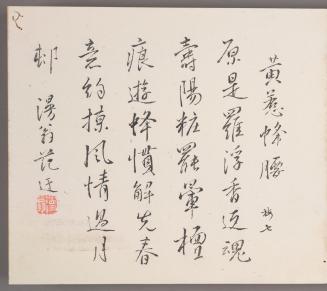 黃惹蜂腰 梅七
原是羅浮香返魂
壽陽粧罷暈檀
痕遊蜂慣解先春
意約掠風情過月
邨
漫翁范迂